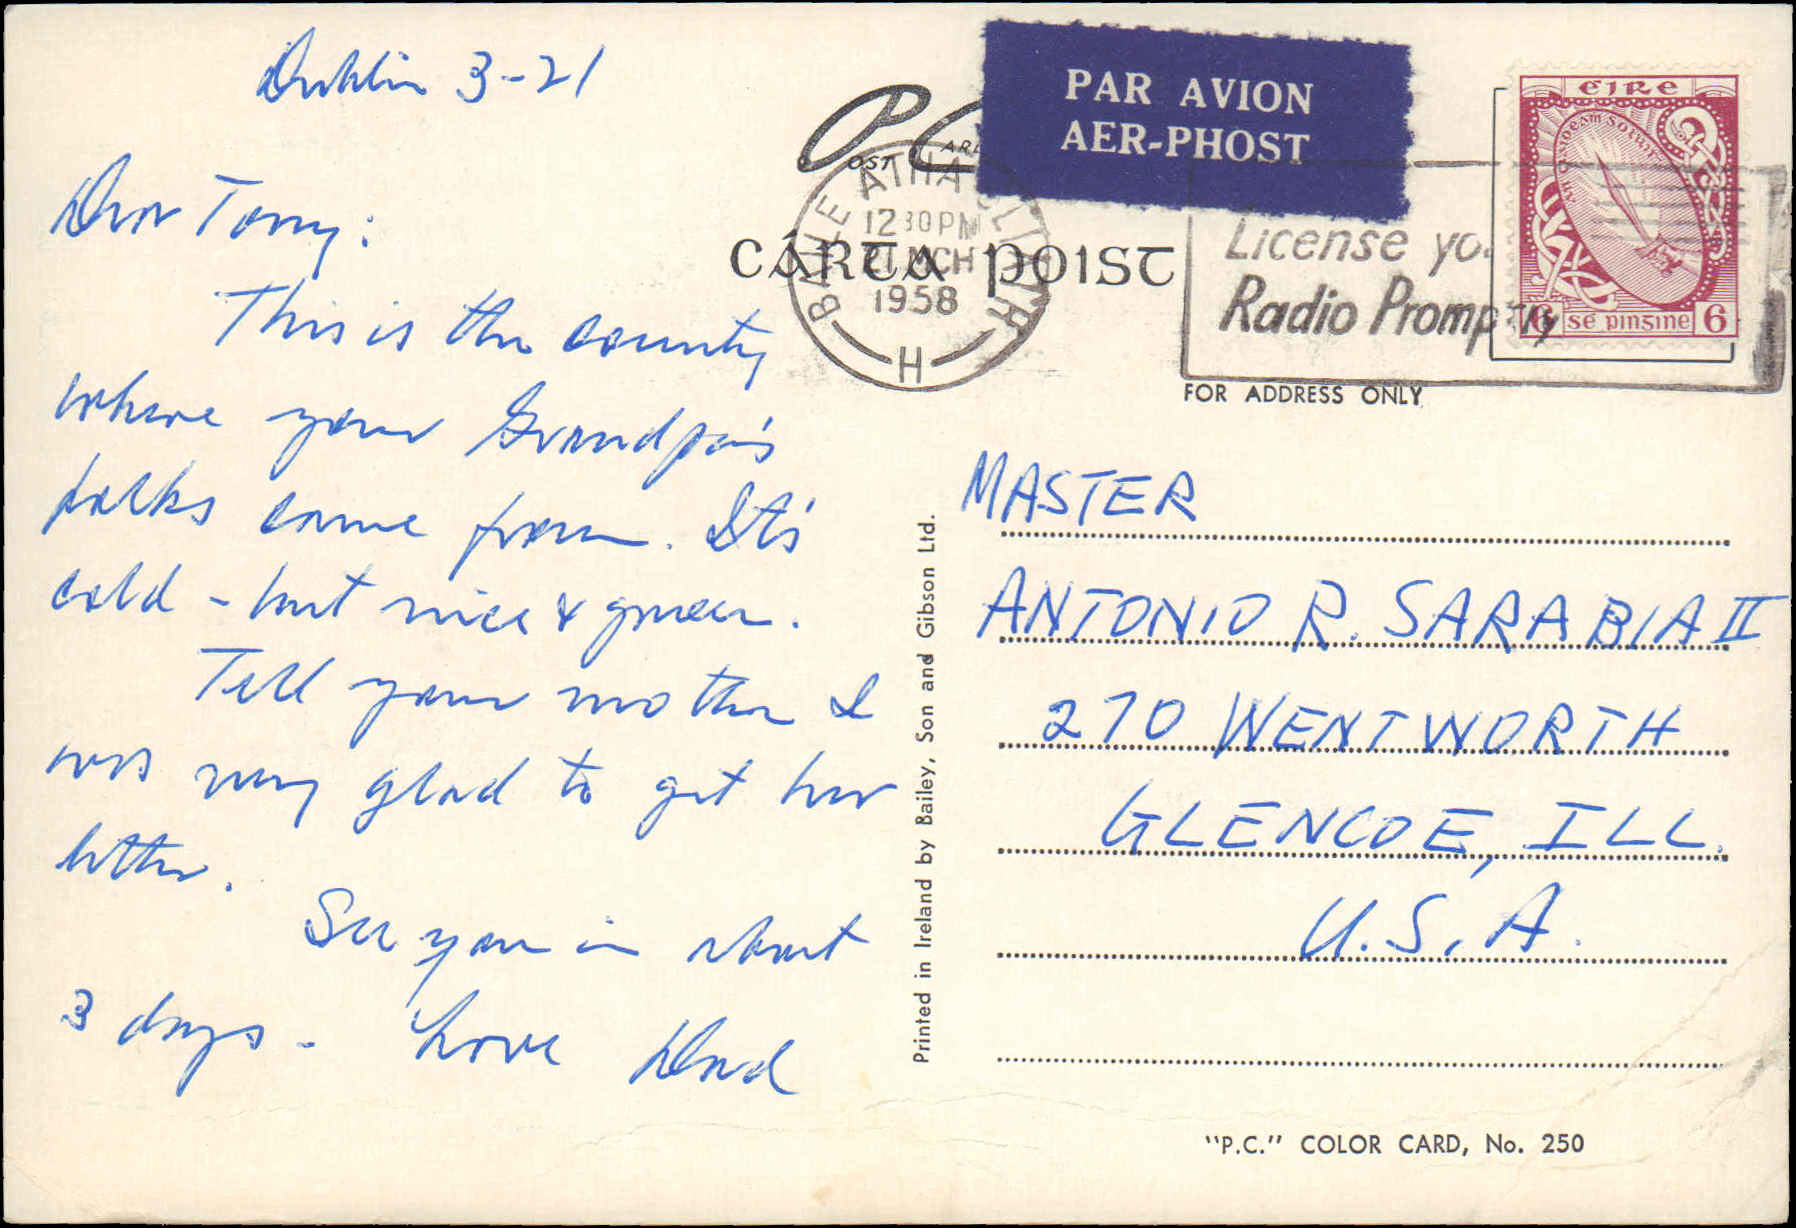 Dublin 3-21
Dear Tony:
This is the county
where your Grandpa's
folks came from. It's
cold - but nice & green.
Tell your mother I
was very glad to get her
letter.
See you in about
3 days - Love Dad
POST CARD
PAR AVION
AER-PHOST
CÁRTA POIST
BAILE ÁTHA CLIATH
12 30PM
21 MCH
1958
H
License you
Radio Promptly
ÉIRE
AN CLAIDEAM SOLUIS
6 SÉ PINGINE 6
FOR ADDRESS ONLY
MASTER
ANTONIO R. SARABIA II
270 WENTWORTH
GLENCOE, ILL.
U.S.A.
Printed in Ireland by Bailey, Son and Gibson Ltd.
"P.C." COLOR CARD, No. 250